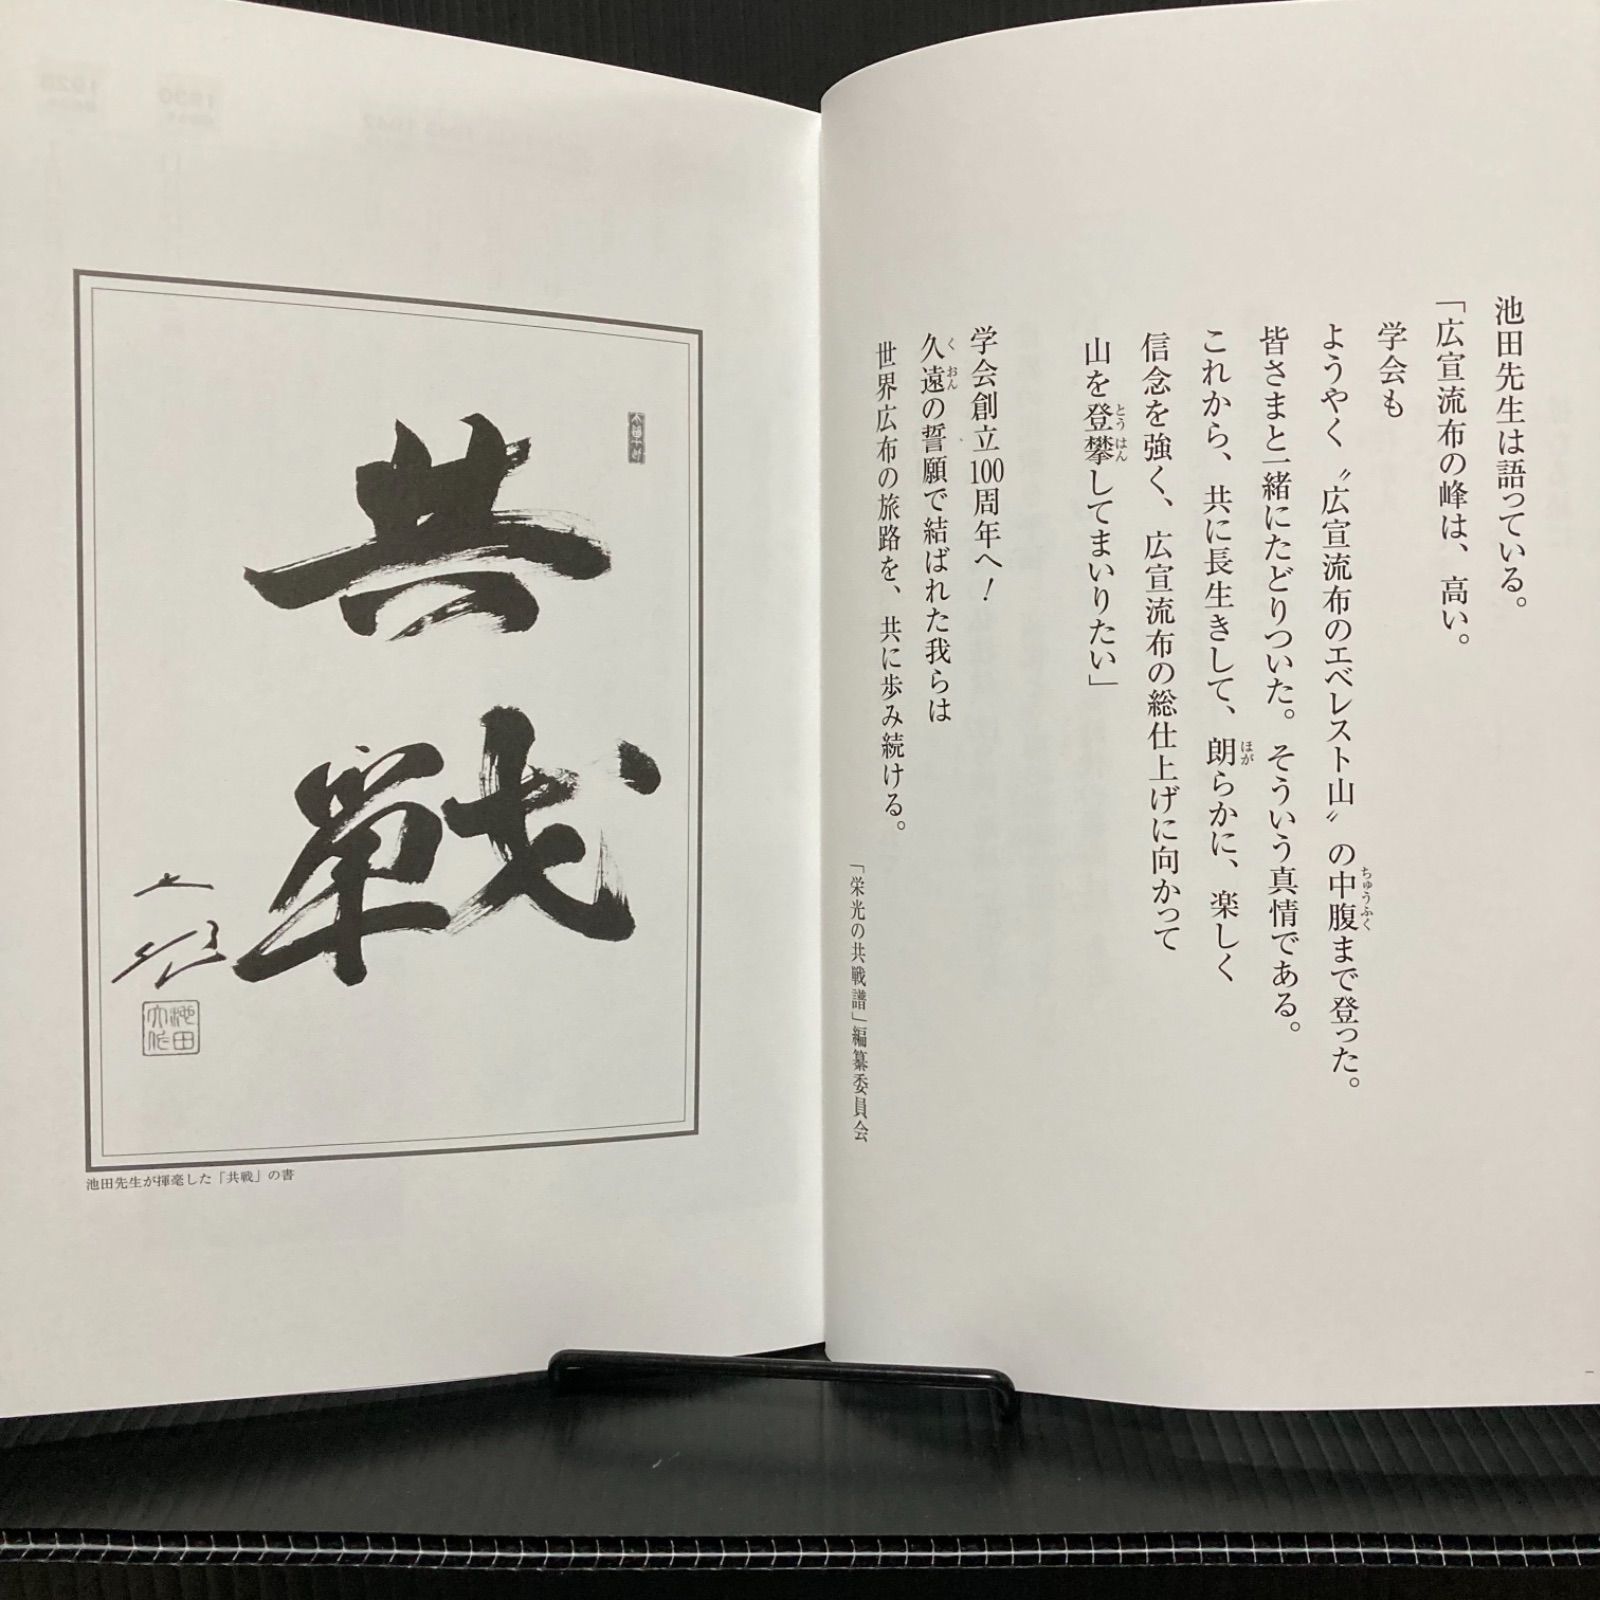 池田先生は語っている。
「広宣流布の峰は、高い。
学会も
ようやく〝広宣流布のエベレスト山〟の中腹まで登った。
ちゅうふく
皆さまと一緒にたどりついた。そういう真情である。
これから、共に長生きして、朗らかに、楽しく
ほが
信念を強く、広宣流布の総仕上げに向かって
山を登攀してまいりたい」
とうはん
学会創立100周年へ!
久遠の誓願で結ばれた我らは
くおん
世界広布の旅路を、共に歩み続ける。
「栄光の共戦譜」編纂委員会
共戦
大作
池田大作
池田先生が揮毫した「共戦」の書